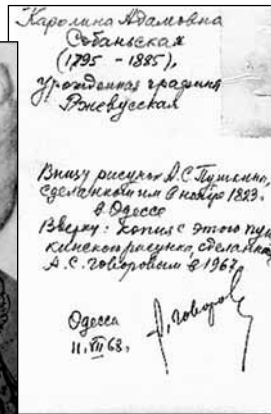 Каролина Адамовна
Собаньская
(1795 - 1885),
урожденная графиня
Ржевусская
Внизу рисунок А.С. Пушкина,
сделанный им в ноябре 1823.
в Одессе
Вверху: копия с этого пуш
кинского рисунка, сделанная
А.С. Говоровым в 1967
Одесса
11. VII 68.
А. Говоров